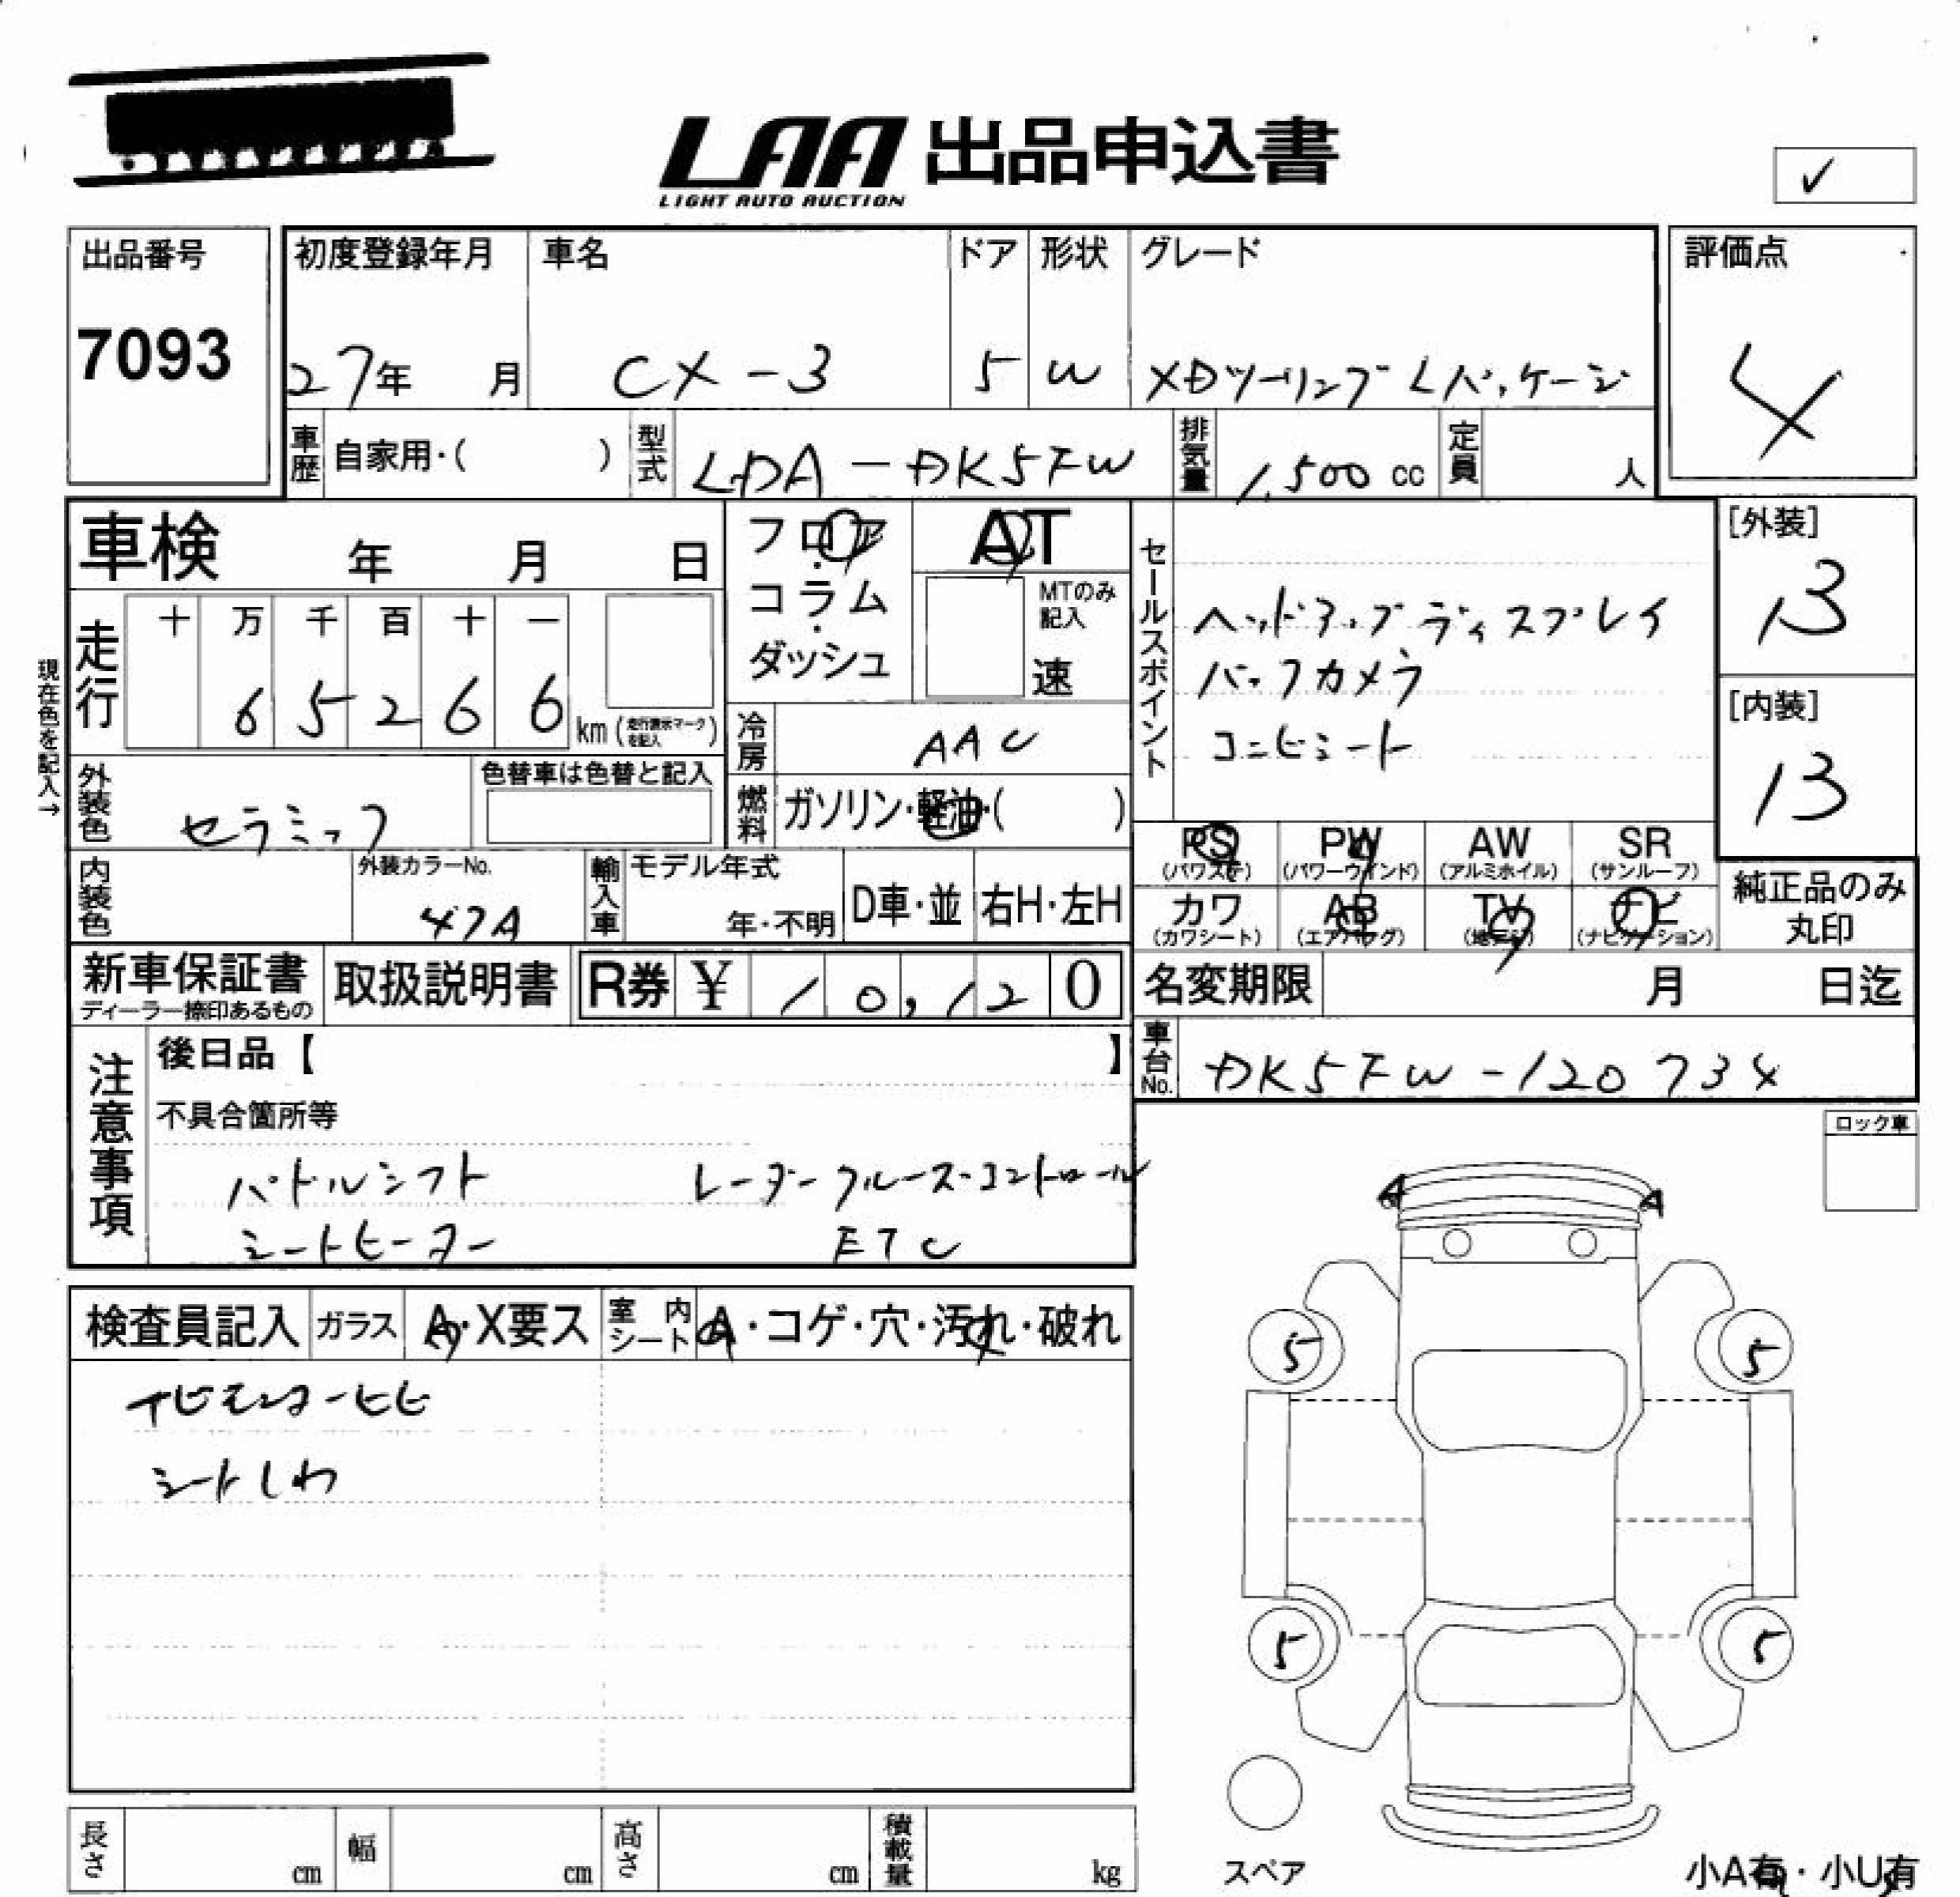 LAA 出品申込書
LIGHT AUTO AUCTION
✓
出品番号
7093
初度登録年月
27年 月
車名
CX-3
ドア
5
形状
W
グレード
XDツーリング Lパッケージ
評価点
4
車歴 自家用・( )
型式 LDA-DK5FW
排気量 1,500 cc
定員 人
車検 年 月 日
フロア・コラム・ダッシュ
AT
MTのみ記入
速
セールスポイント
ヘッドアップディスプレイ
バックカメラ
コンビシート
[外装]
B
[内装]
B
現在色を記入→
走行
十 万 千 百 十 一
6 5 2 6 6 km (走行表示マークを記入)
冷房 AAC
外装色 セラミック
色替車は色替と記入
燃料 ガソリン・軽油・( )
PS (パワステ)
PW (パワーウインド)
AW (アルミホイル)
SR (サンルーフ)
内装色
外装カラーNo.
47A
輸入車
モデル年式
年・不明
D車・並
右H・左H
カワ (カワシート)
AB (エアバッグ)
TV (地デジ)
ナビ (ナビゲーション)
純正品のみ
丸印
新車保証書
ディーラー捺印あるもの
取扱説明書
R券 ¥ 10,120
名変期限 月 日迄
車台No. DK5FW-120734
注意事項
後日品【 】
不具合箇所等
パドルシフト レーダークルーズ・コントロール
シートヒーター ETC
ロック車
検査員記入
ガラス A・X要ス
室内シート A・コゲ・穴・汚れ・破れ
シートしわ
A A
5 5
5 5
スペア
長さ cm
幅 cm
高さ cm
積載量 kg
小A有・小U有